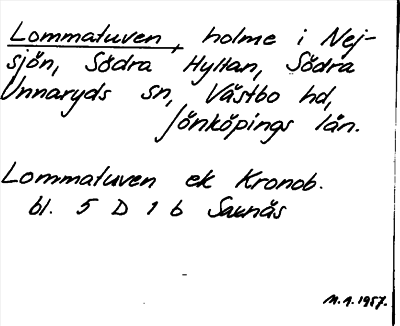 Lommatuven, holme i Nej-
sjön, Södra Hyltan, Södra
Unnaryds sn, Västbo hd,
Jönköpings län.
Lommatuven ek Kronob.
bl. 5 D 1 b Saxnäs
11.1.1957.